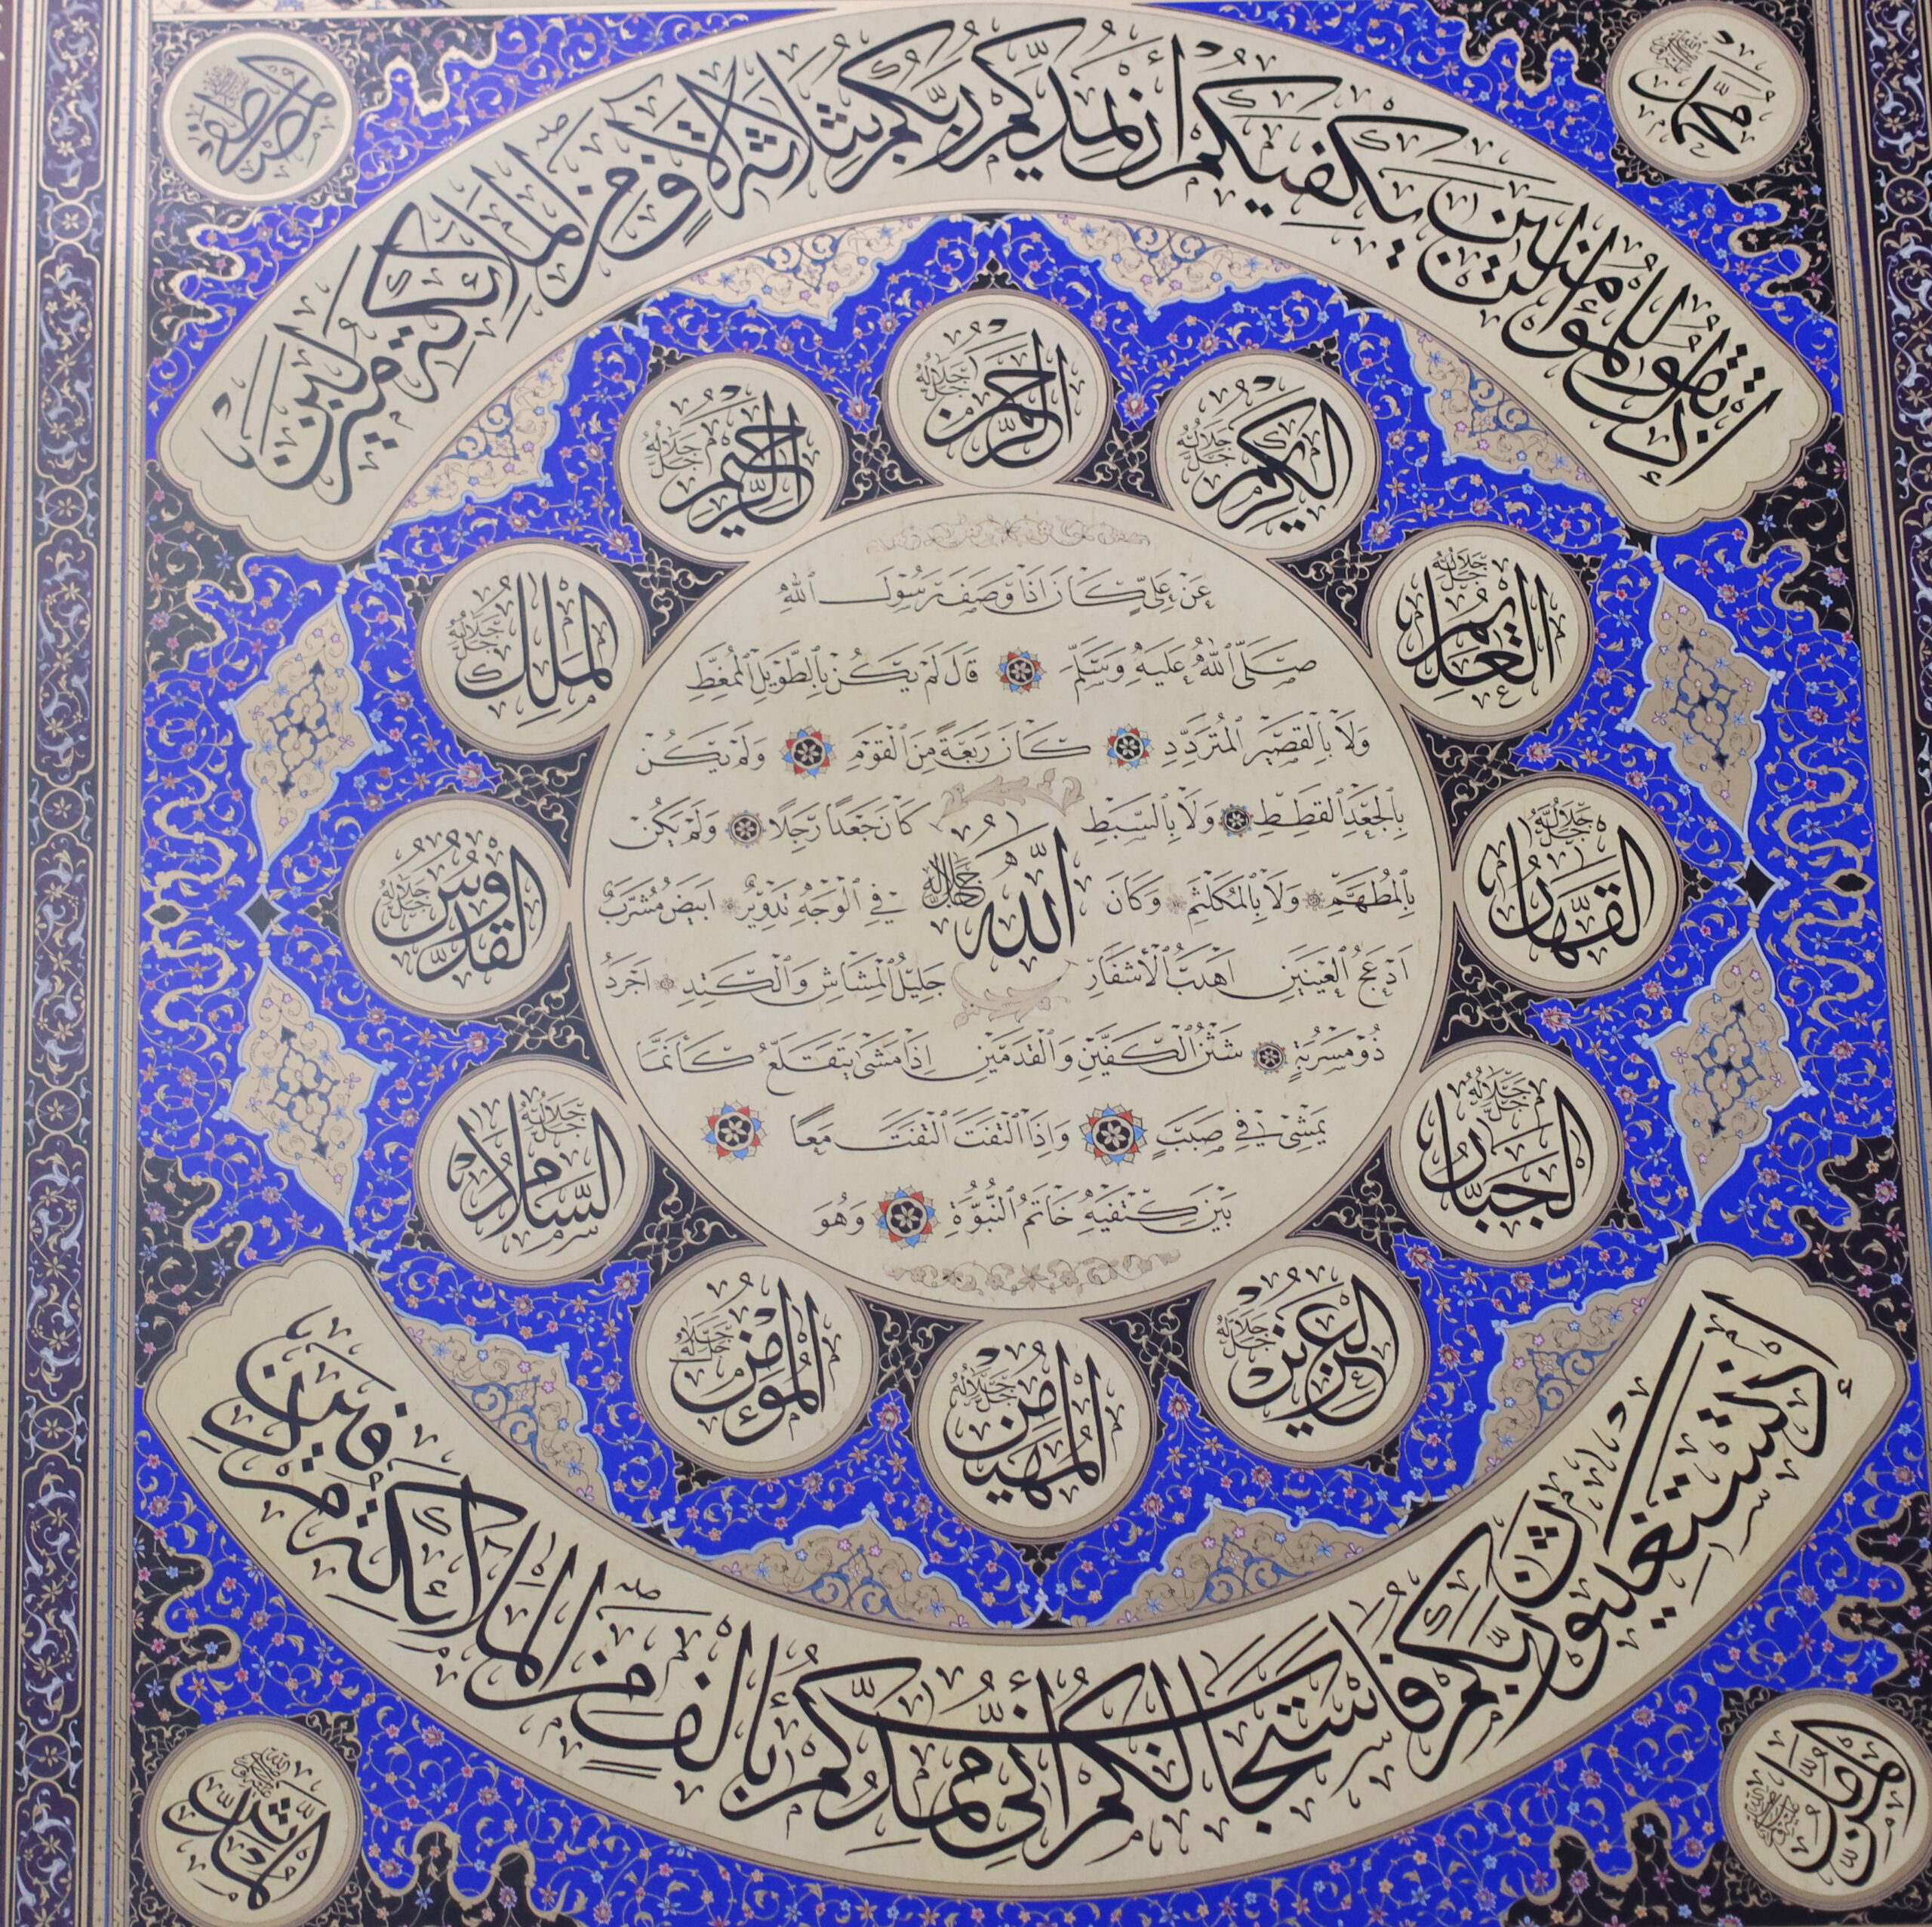 محمد
صلى الله عليه وسلم
مصطفى
إذ تقول للمؤمنين ألن يكفيكم أن يمدكم ربكم بثلاثة آلاف من الملائكة منزلين
الرحمن جل جلاله
الرحيم جل جلاله
الملك جل جلاله
القدوس جل جلاله
السلام جل جلاله
المؤمن جل جلاله
المهيمن جل جلاله
العزيز جل جلاله
الجبار جل جلاله
القهار جل جلاله
العليم جل جلاله
الكريم جل جلاله
عَنْ عَلِيٍّ كَانَ اِذَا وَصَفَ رَسُولَ اللهِ
صَلَّى اللهُ عَلَيْهِ وَسَلَّمَ قَالَ لَمْ يَكُنْ بِالطَّوِيلِ الْمُمَّغِطِ
وَلَا بِالْقَصِيرِ الْمُتَرَدِّدِ كَانَ رَبْعَةً مِنَ الْقَوْمِ وَلَمْ يَكُنْ
بِالْجَعْدِ الْقَطَطِ وَلَا بِالسَّبْطِ كَانَ جَعْدًا رَجِلًا وَلَمْ يَكُنْ
بِالْمُطَهَّمِ وَلَا بِالْمُكَلْثَمِ وَكَانَ فِي الْوَجْهِ تَدْوِيرٌ اَبْيَضُ مُشْرَبٌ
الله جل جلاله
اَدْعَجُ الْعَيْنَيْنِ اَهْدَبُ الْاَشْفَارِ جَلِيلُ الْمُشَاشِ وَالْكَتَدِ اَجْرَدُ
ذُو مَسْرُبَةٍ شَثْنُ الْكَفَّيْنِ وَالْقَدَمَيْنِ اِذَا مَشَى يَتَقَلَّعُ كَأَنَّمَا
يَمْشِي فِي صَبَبٍ وَاِذَا الْتَفَتَ الْتَفَتَ مَعًا
بَيْنَ كَتِفَيْهِ خَاتَمُ النُّبُوَّةِ وَهُوَ
إذ تستغيثون ربكم فاستجاب لكم أني ممدكم بألف من الملائكة مردفين